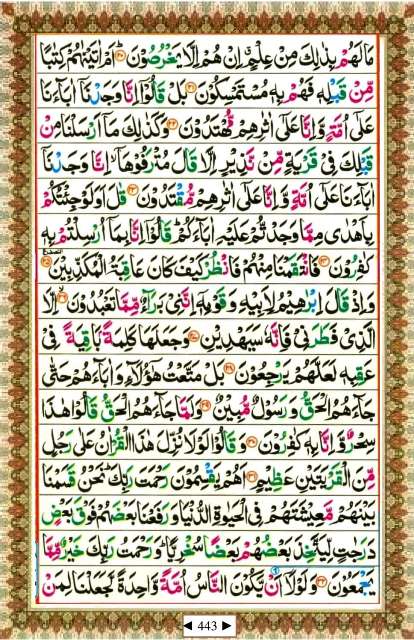 مَا لَهُمْ بِذٰلِكَ مِنْ عِلْمٍ ۗ اِنْ هُمْ اِلَّا يَخْرُصُوْنَ ۝۲۰ اَمْ اٰتَيْنٰهُمْ كِتٰبًا
مِّنْ قَبْلِهٖ فَهُمْ بِهٖ مُسْتَمْسِكُوْنَ ۝۲۱ بَلْ قَالُوْٓا اِنَّا وَجَدْنَآ اٰبَآءَنَا
عَلٰٓى اُمَّةٍ وَّ اِنَّا عَلٰٓى اٰثٰرِهِمْ مُّهْتَدُوْنَ ۝۲۲ وَكَذٰلِكَ مَآ اَرْسَلْنَا مِنْ
قَبْلِكَ فِيْ قَرْيَةٍ مِّنْ نَّذِيْرٍ اِلَّا قَالَ مُتْرَفُوْهَآ ۙ اِنَّا وَجَدْنَآ
اٰبَآءَنَا عَلٰٓى اُمَّةٍ وَّ اِنَّا عَلٰٓى اٰثٰرِهِمْ مُّقْتَدُوْنَ ۝۲۳ قٰلَ اَوَلَوْ جِئْتُكُمْ
بِاَهْدٰى مِمَّا وَجَدْتُّمْ عَلَيْهِ اٰبَآءَكُمْ ۗ قَالُوْٓا اِنَّا بِمَآ اُرْسِلْتُمْ بِهٖ
كٰفِرُوْنَ ۝۲۴ فَانْتَقَمْنَا مِنْهُمْ فَانْظُرْ كَيْفَ كَانَ عَاقِبَةُ الْمُكَذِّبِيْنَ ۝۲۵
وَ اِذْ قَالَ اِبْرٰهِيْمُ لِاَبِيْهِ وَ قَوْمِهٖٓ اِنَّنِيْ بَرَآءٌ مِّمَّا تَعْبُدُوْنَ ۝۲۶ اِلَّا
الَّذِيْ فَطَرَنِيْ فَاِنَّهٗ سَيَهْدِيْنِ ۝۲۷ وَجَعَلَهَا كَلِمَةً بَاقِيَةً فِيْ
عَقِبِهٖ لَعَلَّهُمْ يَرْجِعُوْنَ ۝۲۸ بَلْ مَتَّعْتُ هٰٓؤُلَآءِ وَ اٰبَآءَهُمْ حَتّٰى
جَآءَهُمُ الْحَقُّ وَ رَسُوْلٌ مُّبِيْنٌ ۝۲۹ وَ لَمَّا جَآءَهُمُ الْحَقُّ قَالُوْا هٰذَا
سِحْرٌ وَّ اِنَّا بِهٖ كٰفِرُوْنَ ۝۳۰ وَ قَالُوْا لَوْلَا نُزِّلَ هٰذَا الْقُرْاٰنُ عَلٰى رَجُلٍ
مِّنَ الْقَرْيَتَيْنِ عَظِيْمٍ ۝۳۱ اَهُمْ يَقْسِمُوْنَ رَحْمَتَ رَبِّكَ ۗ نَحْنُ قَسَمْنَا
بَيْنَهُمْ مَّعِيْشَتَهُمْ فِي الْحَيٰوةِ الدُّنْيَا وَ رَفَعْنَا بَعْضَهُمْ فَوْقَ بَعْضٍ
دَرَجٰتٍ لِّيَتَّخِذَ بَعْضُهُمْ بَعْضًا سُخْرِيًّا ۗ وَ رَحْمَتُ رَبِّكَ خَيْرٌ مِّمَّا
يَجْمَعُوْنَ ۝۳۲ وَ لَوْلَآ اَنْ يَّكُوْنَ النَّاسُ اُمَّةً وَّاحِدَةً لَّجَعَلْنَا لِمَنْ
◄ 443 ►